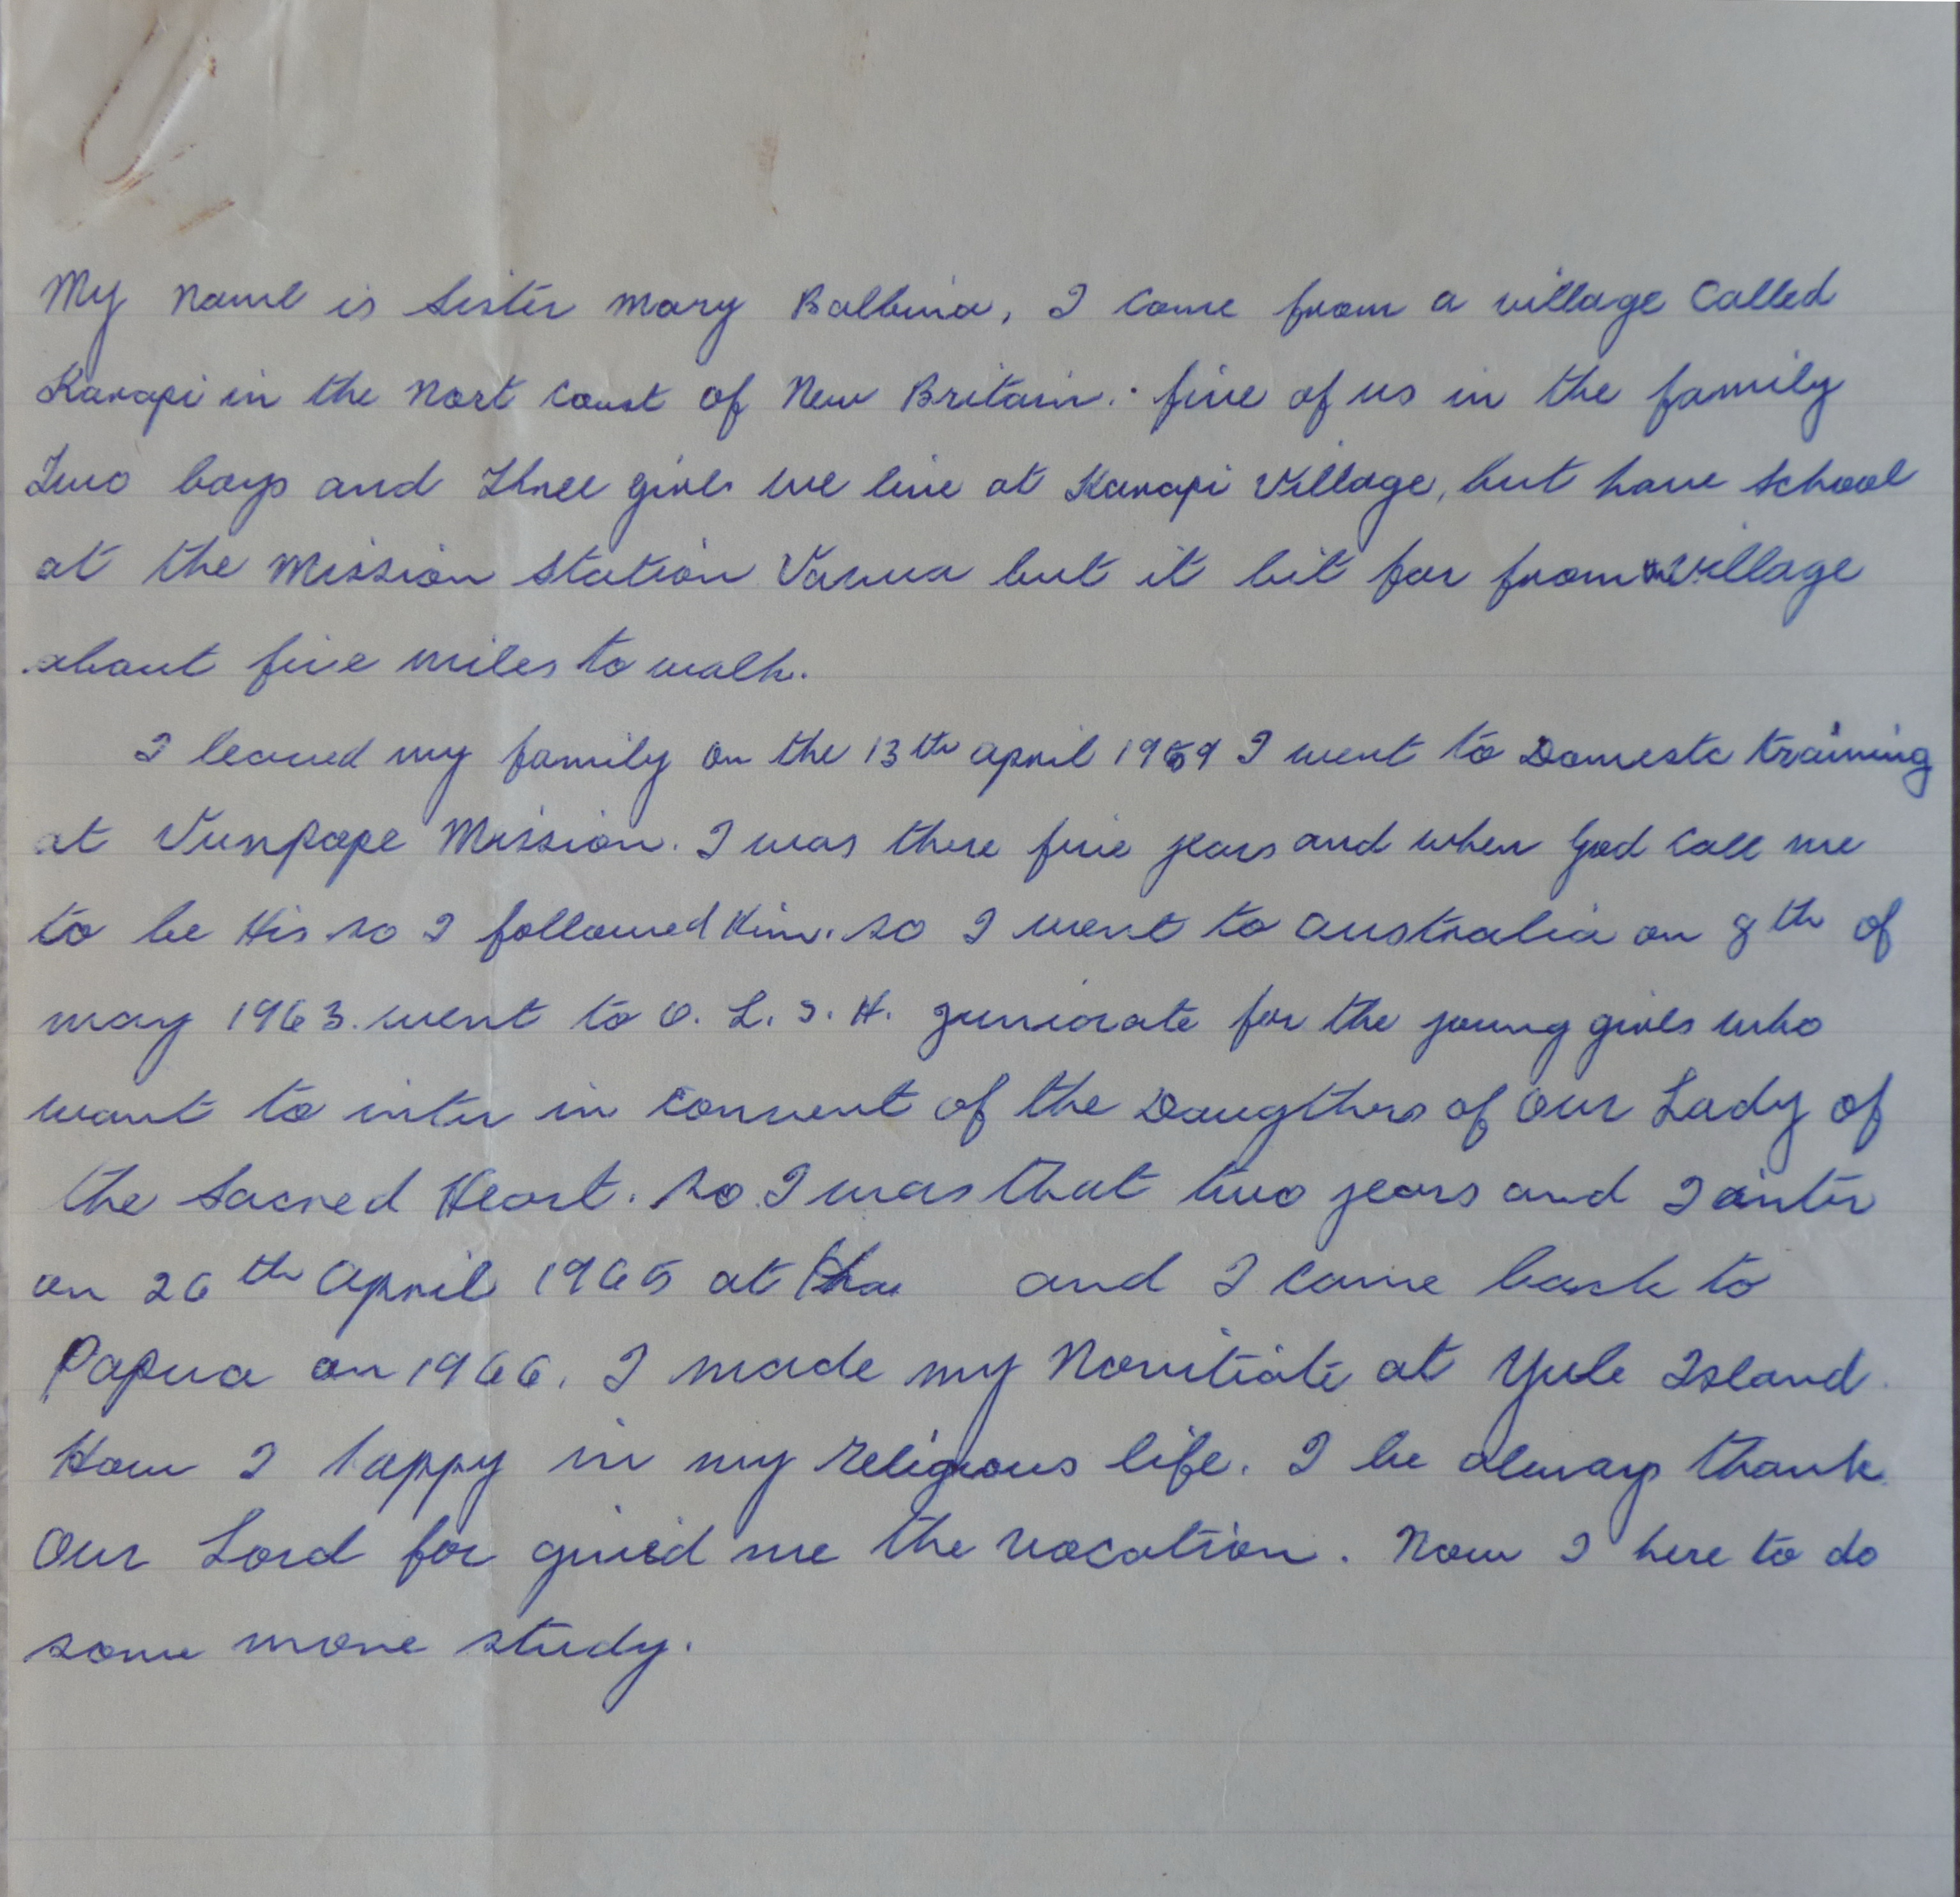 My name is Sister Mary Balbina, I come from a village called
Karapi in the Nort Coust of New Britain. five of us in the family
Two boys and Three girls we live at Karapi Village, but have school
at the Mission Station Vanua but it bit far from village
about five miles to walk.
I leaved my family on the 13th april 1959 I went to Domestc training
at Vunapope Mission. I was there five years and when God call me
to be His so I followed Him. so I went to Australia on 8th of
may 1963. went to O. L. S. H. Juniorate for the young girls who
want to inter in Convent of the Daugthers of Our Lady of
the Sacred Heart. So I was that two years and I inter
on 26th April 1965 at and I came back to
Papua on 1966. I made my Novitiate at Yule Island.
How I happy in my religious life. I be always thank
Our Lord for gived me the vocation. Now I here to do
some more study.